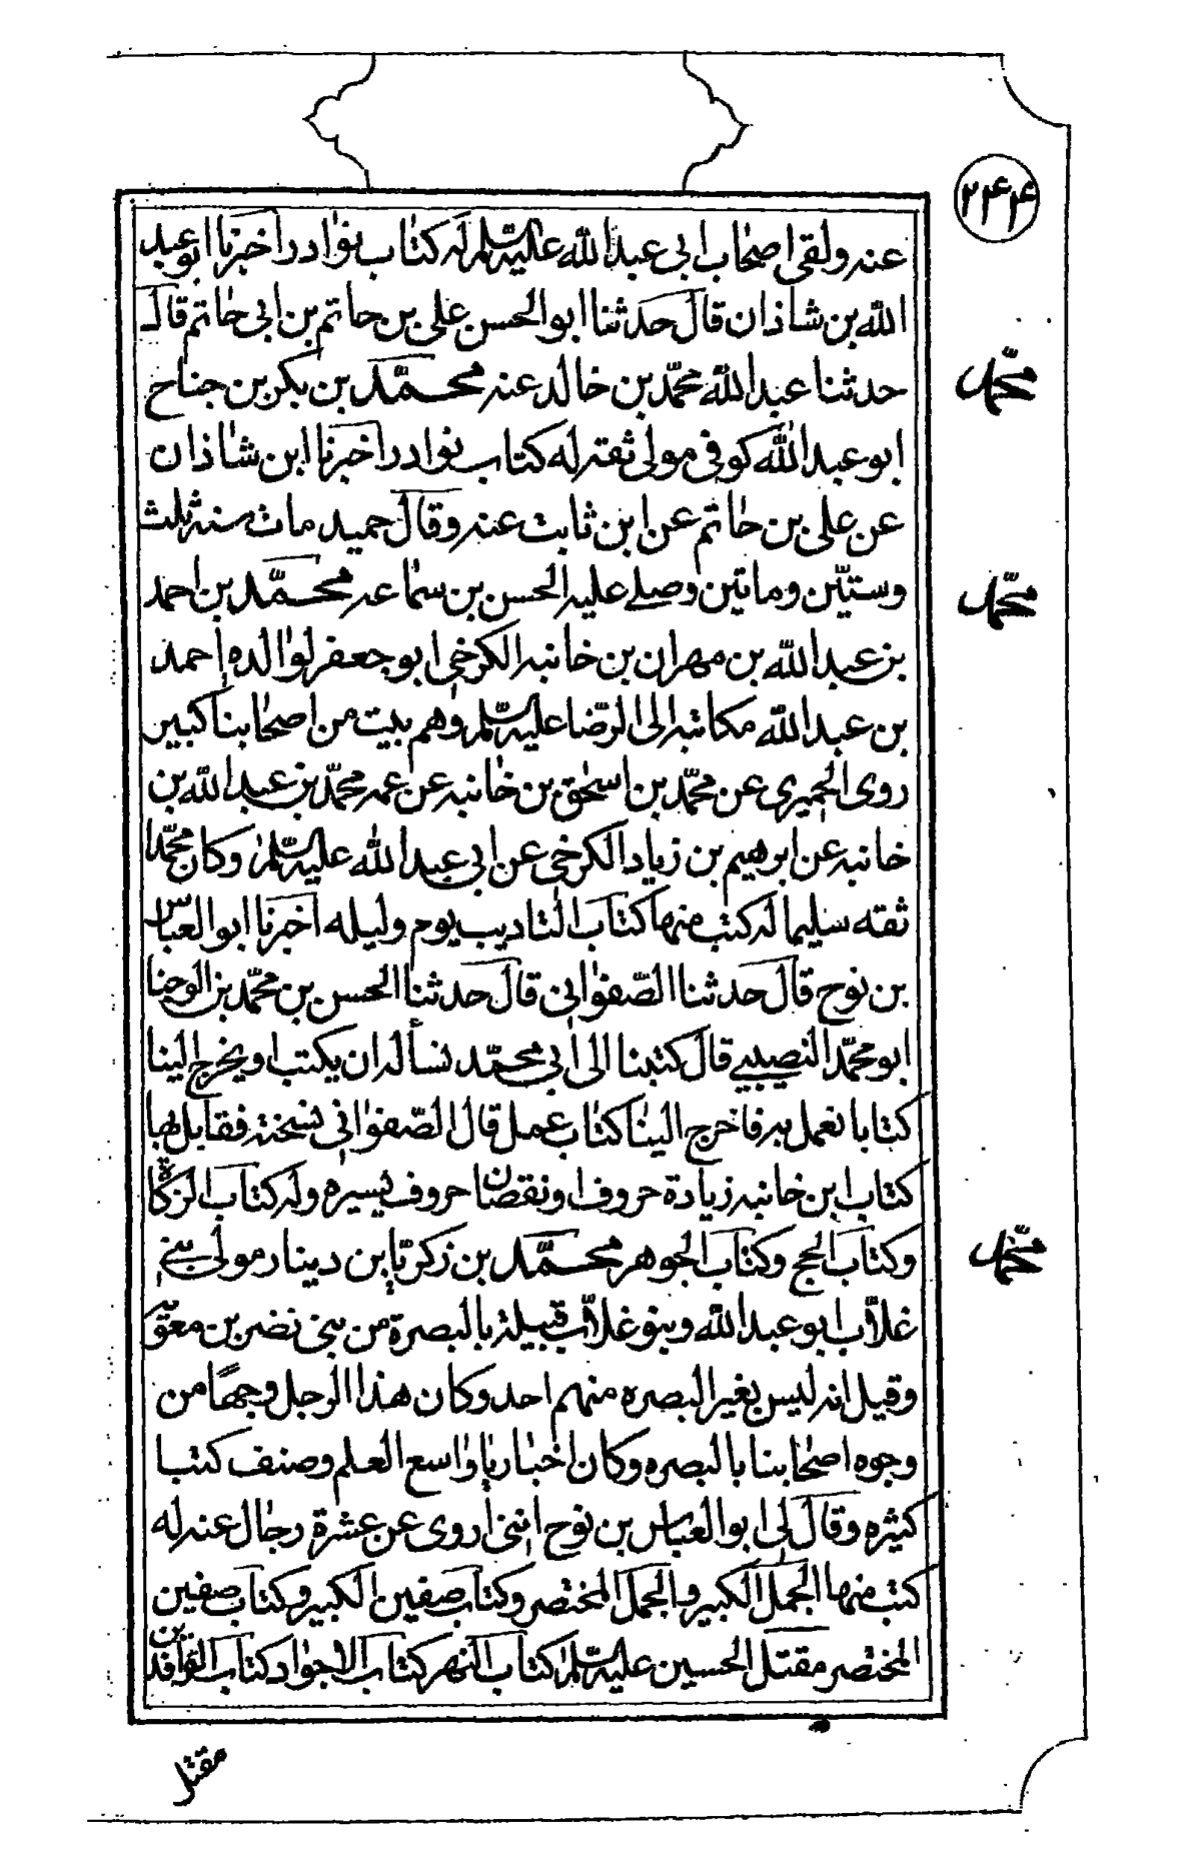 ۲۴۴
عنه ولقى اصحاب ابى عبد الله عليه السلم له كتاب نوادر اخبرنا ابو عبد
الله بن شاذان قال حدثنا ابو الحسن على بن حاتم بن ابى حاتم قال
محمّد
حدثنا عبد الله محمّد بن خالد عنه محمّد بن بكر بن جناح
ابو عبد الله كوفى مولى ثقه له كتاب نوادر اخبرنا ابن شاذان
عن على بن حاتم عن ابن ثابت عنه وقال حميد مات سنه ثلث
محمّد
وستيّن وماتين وصلے عليه الحسن بن سماعه محمّد بن احمد
بن عبد الله بن مهران بن خانبه الكرخى ابو جعفر لوالده احمد
بن عبد الله مكاتبه الى الرّضا عليه السّلم وهم بيت من اصحابنا كبير
روى الحميرى عن محمّد بن اسحٰق بن خانبه عن عمه محمّد بن عبد الله بن
خانبه عن ابرهيم بن زياد الكرخى عن ابى عبد الله عليه السّلم وكان محمّدا
ثقه سليما له كتب منها كتاب التاديب يوم وليله اخبرنا ابو العباس
بن نوح قال حدثنا الصّفوانى قال حدثنا الحسن بن محمّد بن الوجنا
ابو محمّد النصيبے قال كتبنا الى ابى محمّد نسأله ان يكتب او يخرج الينا
كتابا نعمل به فاخرج الينا كتاب عمل قال الصّفوانى نسخته فقابل بها
كتاب ابن خانبه زيادة حروف او نقصان حروف يسيره وله كتاب الزكاة
محمّد
وكتاب الحج وكتاب الجوهر محمّد بن زكريّا بن دينار مولى بنے
غلاّب ابو عبد الله وبنو غلاّب قبيلة بالبصرة من بنى نضر بن معوّية
وقيل انه ليس بغير البصره منهم احد وكان هذا الرجل وجهًا من
وجوه اصحابنا بالبصره وكان اخباريا واسع العلم وصنف كتبا
كثيره وقال لى ابو العباس بن نوح اننى اروى عن عشرة رجال عنه له
كتب منها الجمل الكبير والجمل المختصر وكتاب صفين الكبير وكتاب صفين
المختصر مقتل الحسين عليه السّلم كتاب النهر كتاب الاجواد كتاب الوافدين
مقتل